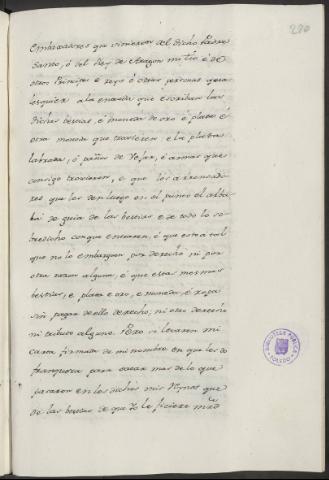 280
embaxadores que vinieren del dicho Padre
Santo, ó del Rey de Aragon mi tio é de
otros Principes e reyes ó otras personas qua
lesquier a la entrada que escriban las
dichas bestias, é moneda de oro é plata é
otra moneda que traxieren e la plata
labrada, é paños de vestir, é armas que
consigo troxieren, e que los arrendado
res que les den luego en el puerto el alba
lá de guia de las bestias e de todo lo so
bredicho con que entraren, é que este a tal
que no lo embarguen por derecho ni por
otra razon alguna, é que estas mesmas
bestias, e plata e oro, e moneda, é ropa
sin pagar de ello derecho, ni otro derecho
ni tributo alguno. Pero si levaren mi
carta firmada de mi nombre en que les do
franqueza para sacar mas de lo que
pasaron en los dichos mis Reynos que
de las bestias de que Yo le ficiere
BIBLIOTECA PUBLICA
TOLEDO